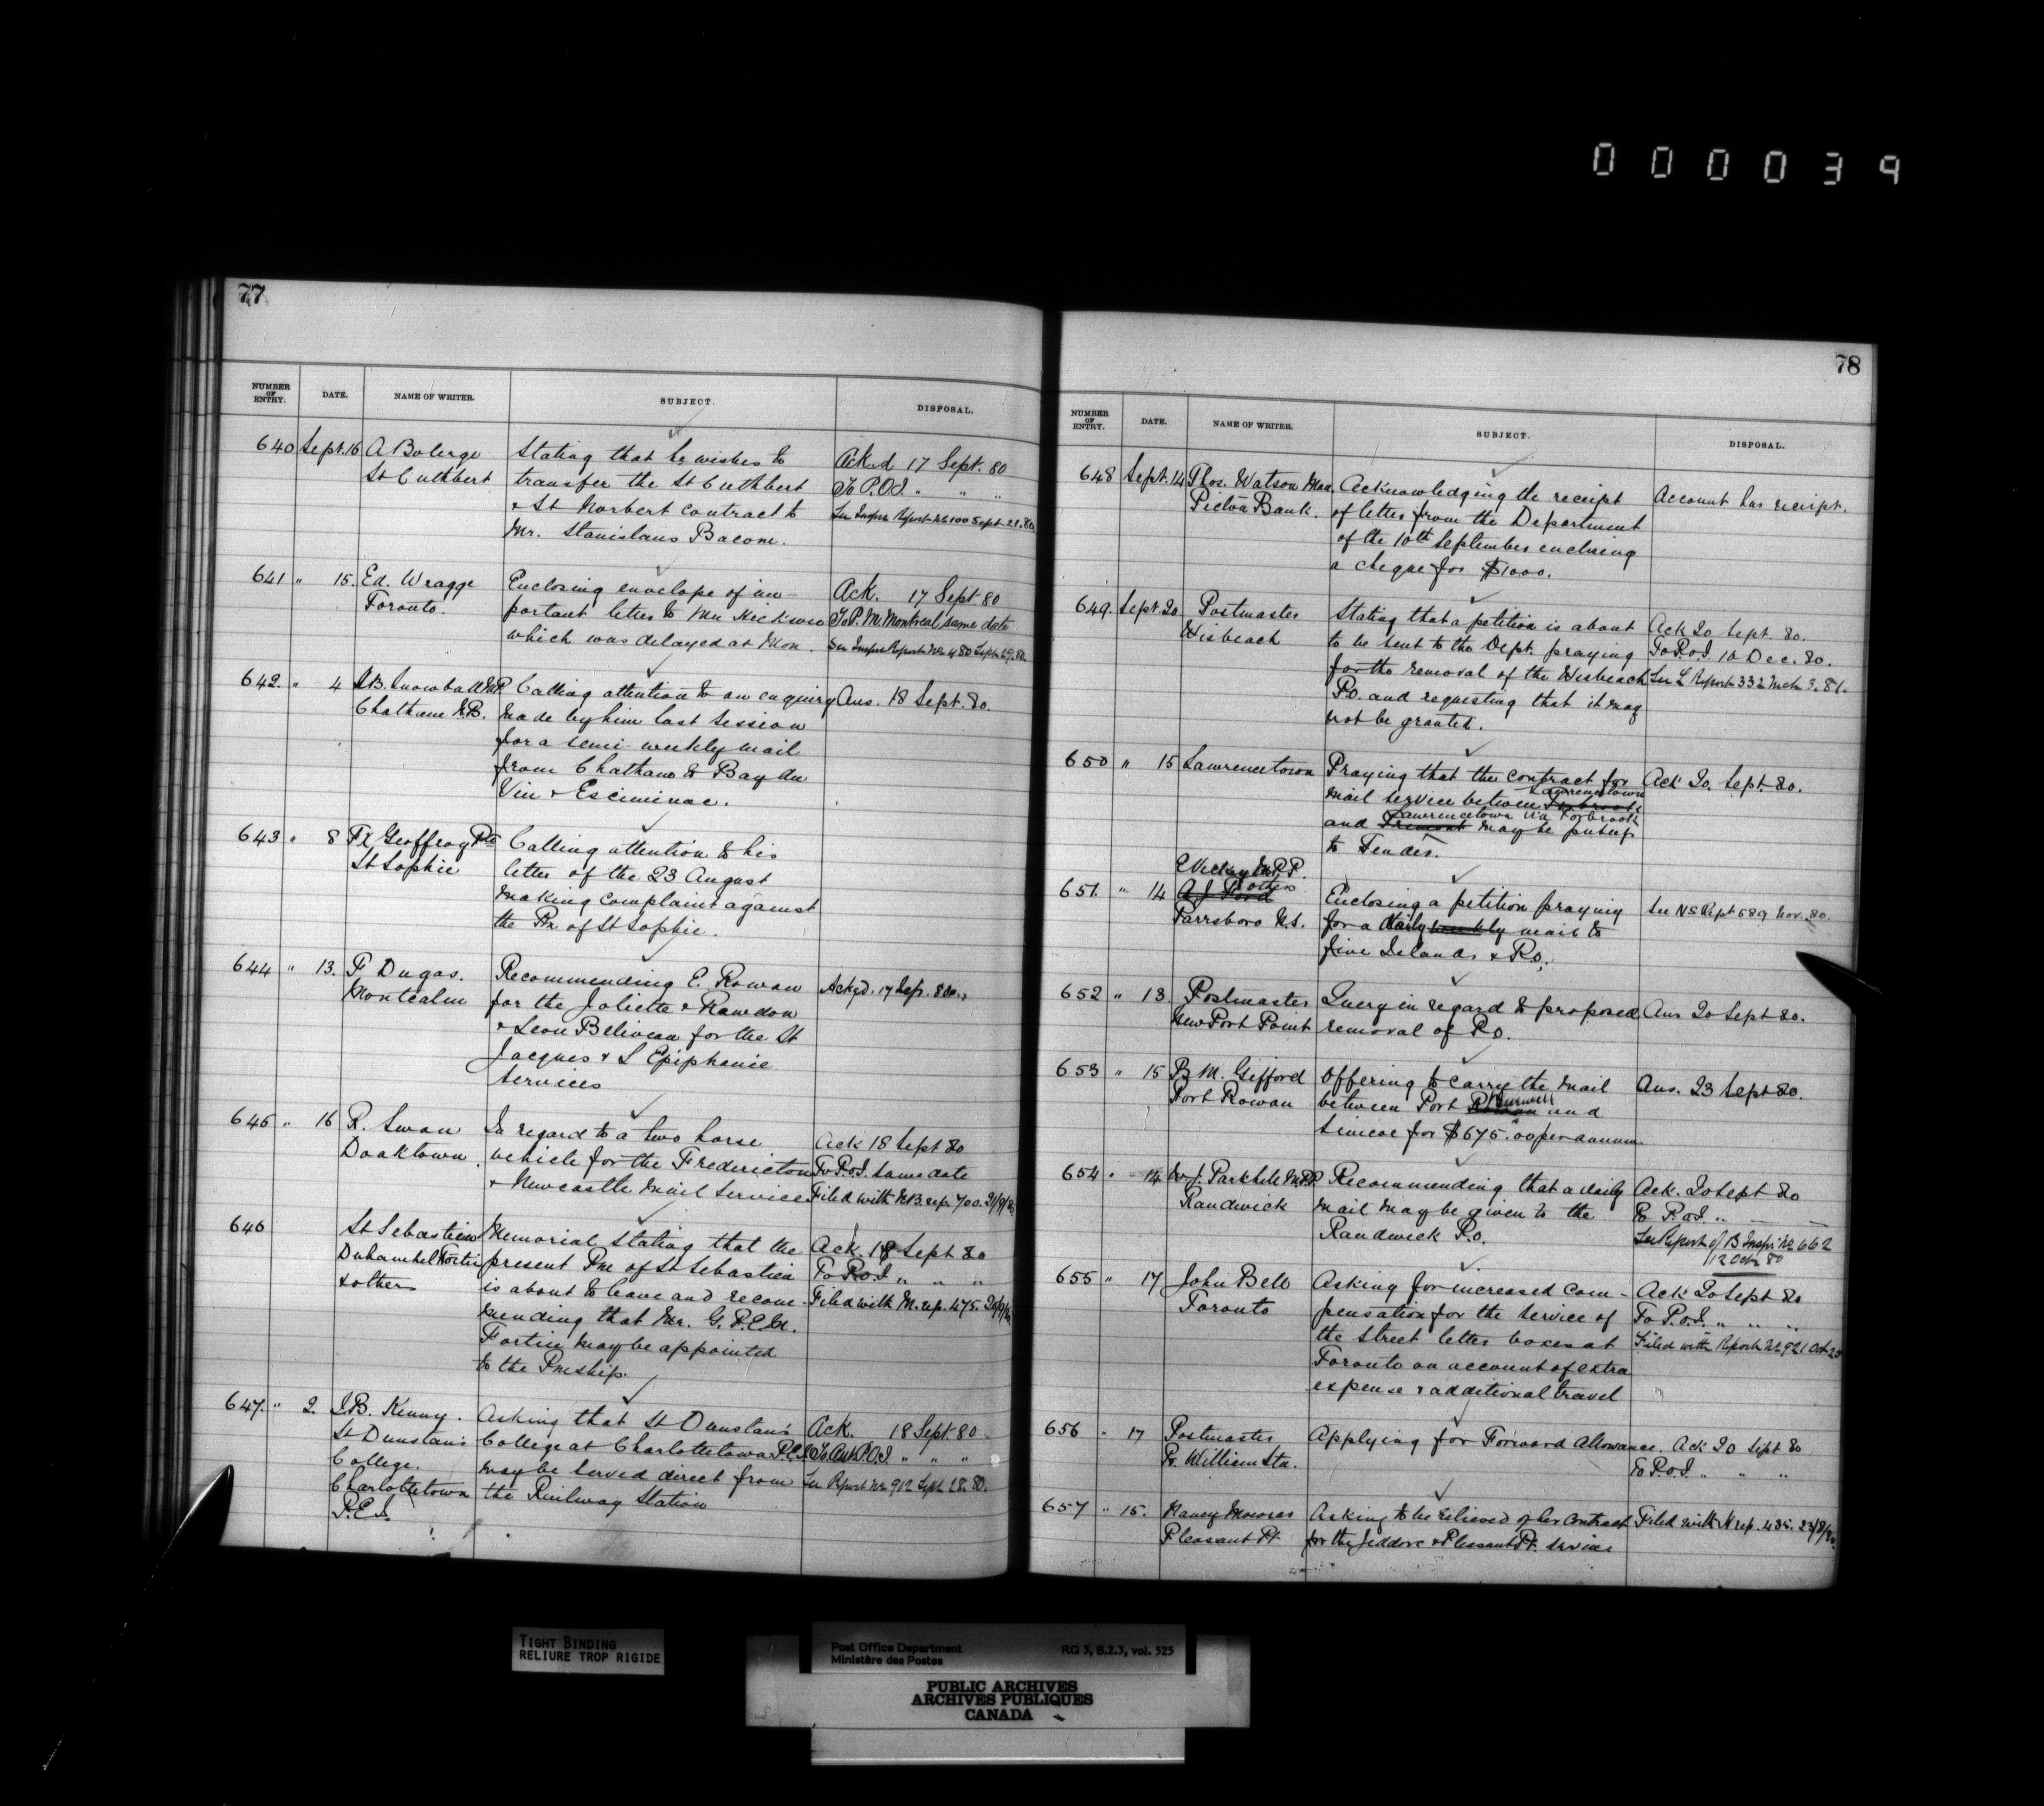 000039
77
NUMBER OF ENTRY. DATE. NAME OF WRITER. SUBJECT. DISPOSAL.
640 Sept. 16 A Bolerge Stating that he wishes to Ack.d 17 Sept. 80
St Cuthbert transfer the St Cuthbert To P.O.I. " " "
& St Norbert contract to See Inspr Report No 100 Sept 21. 80
Mr. Stanislaus Bacon.
641 " 15. Ed. Wragge Enclosing envelope of im- Ack. 17 Sept. 80
Toronto. portant letter to Mr Hickson To P.M. Montreal same date
which was delayed at Mon. See Inspr Report No 480 Sept. 29. 80.
642. " 4 J.B. Snowball M.P. Calling attention to an enquiry Ans. 18 Sept. 80.
Chatham N.B. made by him last session
for a semi-weekly mail
from Chatham to Bay du
Vin & Esciminac.
643 " 8 Geoffroy Calling attention to his
St Sophie letter of the 23 August
making complaint against
the Pm of St Sophie.
644 " 13. F Dugas. Recommending E. Rowan Ackgd. 17 Sep. 80
Montcalm for the Joliette & Rawdon
& Leon Beliveau for the St
Jacques & L Epiphanie
services
645 " 16 R. Swan In regard to a two horse Ack 18 Sept 80
Doaktown. vehicle for the Fredericton To P.O.I. same date
& Newcastle Mail Service Filed with N.B. rep. 700. 21/9/80
646 St Sebastien Memorial stating that the Ack. 18 Sept 80
Duhamel Fortin present Pm of St Sebastien To P.O.I. " " "
& others is about to leave and recom- Filed with M. rep. 475.
mending that Mr. G. P. E. M.
Fortin may be appointed
to the Pmship.
647. " 2. J.B. Kenny. Asking that St Dunstan's Ack. 18 Sept. 80
St Dunstan's College at Charlottetown P.E.I. To Asst P.O.I. " " "
College. may be served direct from See Report No 912 Sept 28. 80.
Charlottetown the Railway Station
P.E.I.
78
NUMBER OF ENTRY. DATE. NAME OF WRITER. SUBJECT. DISPOSAL.
648 Sept. 14 Thos. Watson Man. Acknowledging the receipt Account has receipt.
Pictou Bank. of letter from the Department
of the 10th September enclosing
a cheque for $1000.
649. Sept. 20 Postmaster Stating that a petition is about Ack 20 Sept. 80.
Wisbeach to be sent to the Dept. praying To P.O.I. 10 Dec. 80.
for the removal of the Wisbeach See L Report 332 Mch 3. 81.
P.O. and requesting that it may
not be granted.
650 " 15 Lawrencetown Praying that the contract for Ack 20. Sept. 80.
Lawrencetown
mail service between Torbrook
Lawrencetown via Torbrook
and Tremont may be put up
to Tender.
C Vickery M.P.P.
& others
651. " 14 A J Ford Enclosing a petition praying See NS Rept 589 Nov. 80.
Parrsboro N.S. for a daily weekly mail to
Five Islands & P.O.
652 " 13 Postmaster Query in regard to proposed Ans 20 Sept 80.
New Port Point removal of P.O.
653 " 15 B M. Gifford Offering to carry the mail Ans. 23 Sept 80.
Burwell
Port Rowan between Port Rowan and
Simcoe for $675.00 per annum
654 " 14 W. J. Parkhill M.P.P. Recommending that a daily Ack. 20 Sept 80
Randwick mail may be given to the To P.O.I. " " "
Randwick P.O. See Report of B Inspr No 662
12 Oct 80
655 " 17 John Bell Asking for increased com- Ack 20 Sept 80
Toronto pensation for the service of To P.O.I. " " "
the street letter boxes at Filed with Report No 921 Oct 23
Toronto on account of extra
expense & additional travel
656 " 17 Postmaster Applying for Forward Allowance. Ack 20 Sept 80
Pr. William Sta. To P.O.I. " " "
657 " 15. Nancy Asking to be relieved of her contract Filed with N rep. 435.
Pleasant Pt for the Jeddore & Pleasant Pt. service
TIGHT BINDING
RELIURE TROP RIGIDE
Post Office Department RG 3, B.2.3, vol. 525
Ministère des Postes
PUBLIC ARCHIVES
ARCHIVES PUBLIQUES
CANADA